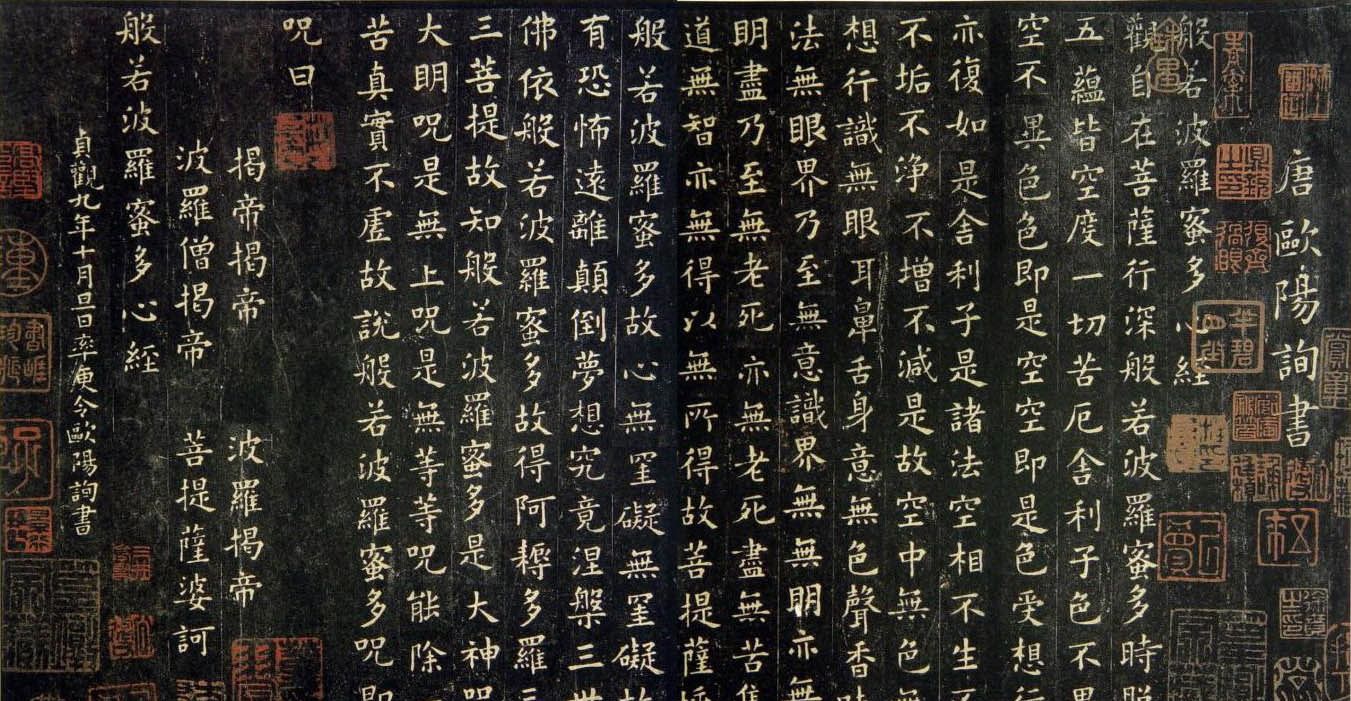 唐歐陽詢書
般若波羅蜜多心經
觀自在菩薩行深般若波羅蜜多時照
五蘊皆空度一切苦厄舍利子色不異
空不異色色即是空空即是色受想行
亦復如是舍利子是諸法空相不生不
不垢不淨不增不減是故空中無色無
想行識無眼耳鼻舌身意無色聲香味
法無眼界乃至無意識界無無明亦無
明盡乃至無老死亦無老死盡無苦集
道無智亦無得以無所得故菩提薩埵
般若波羅蜜多故心無罣礙無罣礙故
有恐怖遠離顛倒夢想究竟涅槃三世
佛依般若波羅蜜多故得阿耨多羅三
三菩提故知般若波羅蜜多是大神咒
大明咒是無上咒是無等等咒能除
苦真實不虛故說般若波羅蜜多咒即
咒曰
揭帝揭帝 波羅揭帝
波羅僧揭帝 菩提薩婆訶
般若波羅蜜多心經
貞觀九年十月旦日率更令歐陽詢書